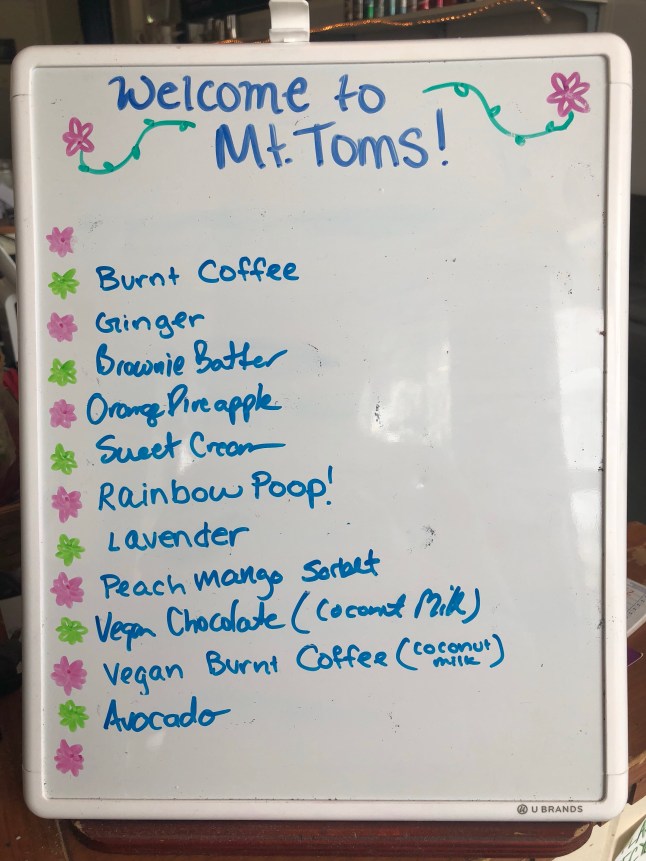 Welcome to
Mt. Toms!
Burnt Coffee
Ginger
Brownie Batter
Orange Pineapple
Sweet Cream
Rainbow Poop!
Lavender
Peach mango Sorbet
Vegan Chocolate (Coconut Milk)
Vegan Burnt Coffee (coconut milk)
Avocado
U BRANDS